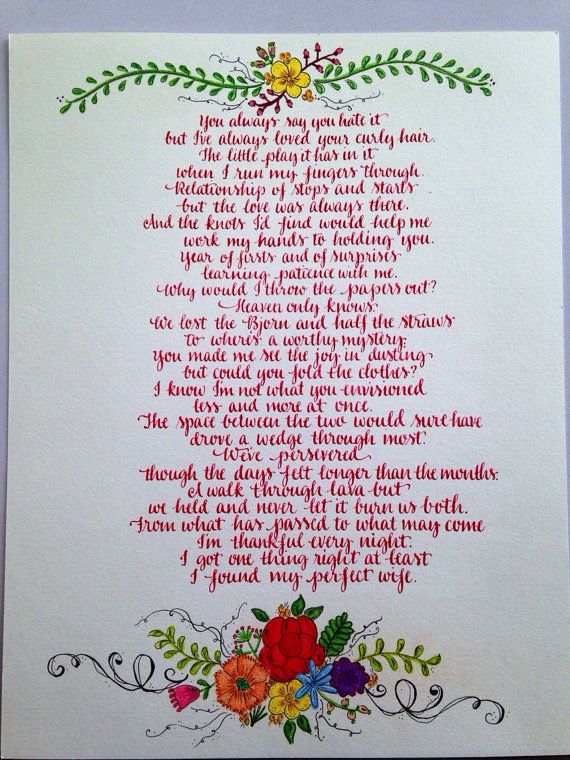 You always say you hate it
but I've always loved your curly hair.
The little play it has in it
when I run my fingers through.
Relationship of stops and starts
but the love was always there.
And the knots I'd find would help me
work my hands to holding you.
Year of firsts and of surprises
learning patience with me.
Why would I throw the papers out?
Heaven only knows.
We lost the Bjorn and half the straws
to where's a worthy mystery.
You made me see the joy in dusting
but could you fold the clothes?
I know I'm not what you envisioned
less and more at once.
The space between the two would sure have
drove a wedge through most.
We've persevered
though the days felt longer than the months.
A walk through lava but
we held and never let it burn us both.
From what has passed to what may come
I'm thankful every night.
I got one thing right at least
I found my perfect wife.